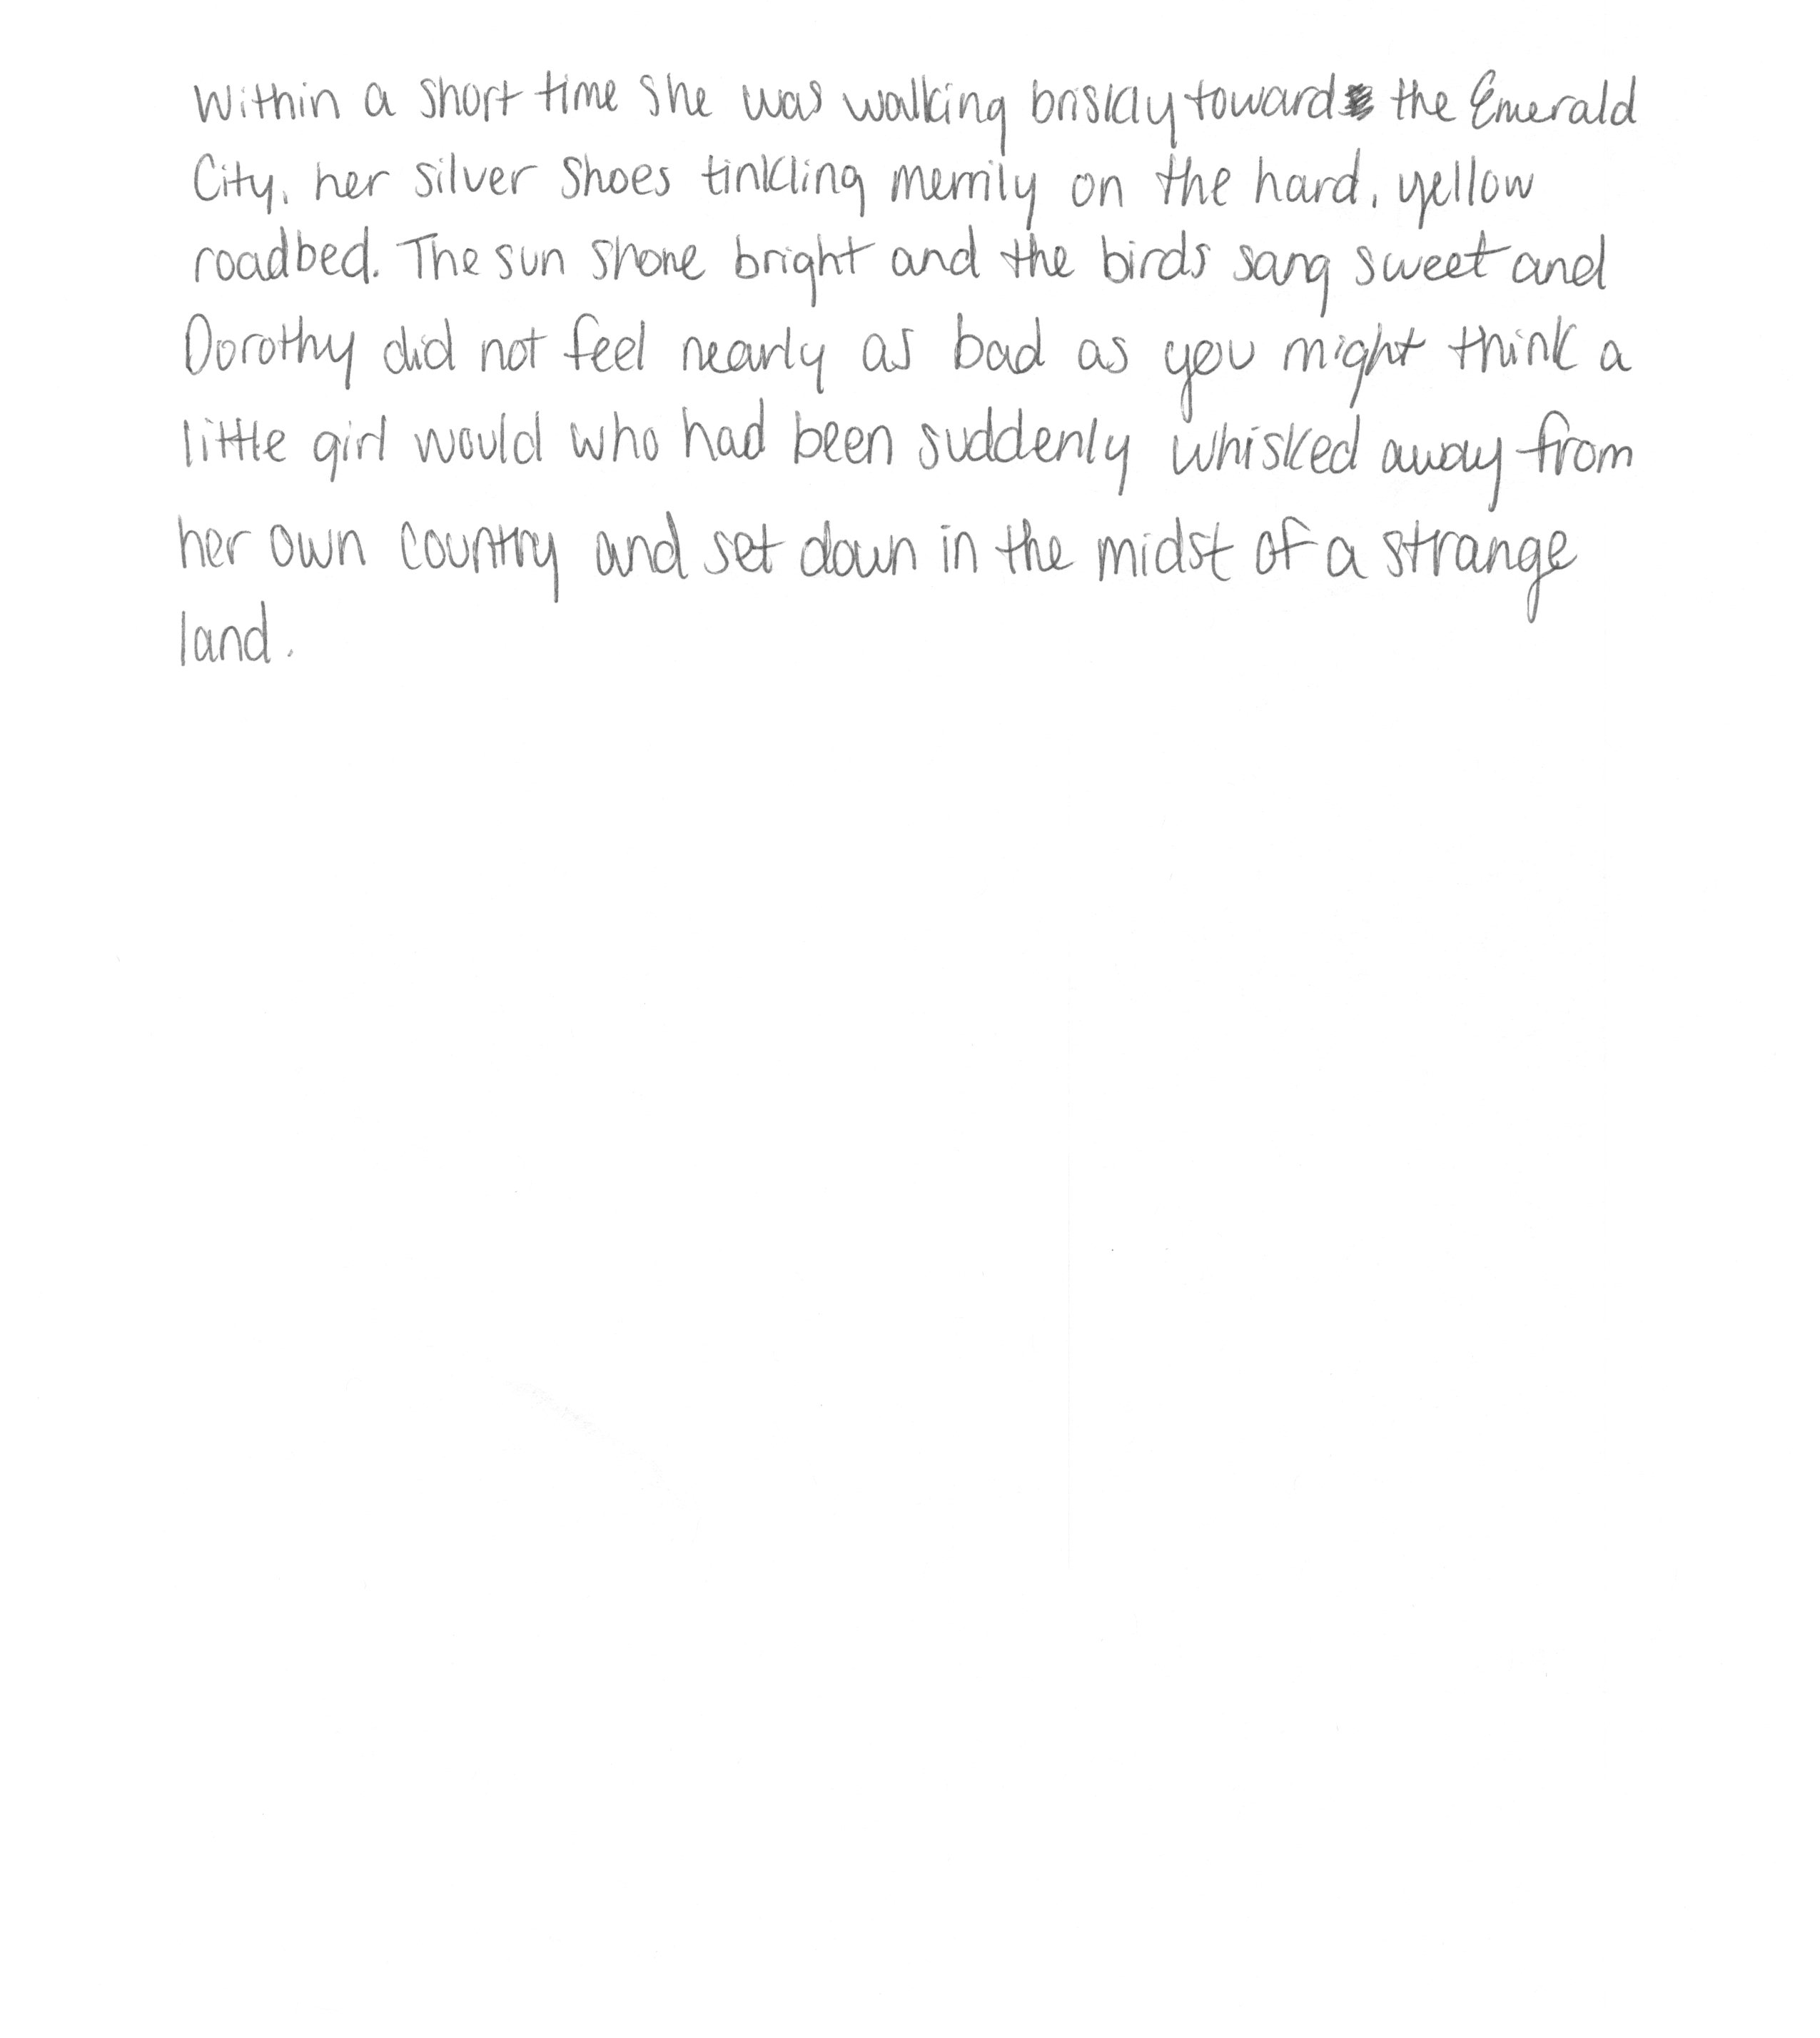 Within a short time she was walking briskly toward the Emerald
City, her silver shoes tinkling merrily on the hard, yellow
roadbed. The sun shone bright and the birds sang sweet and
Dorothy did not feel nearly as bad as you might think a
little girl would who had been suddenly whisked away from
her own country and set down in the midst of a strange
land.